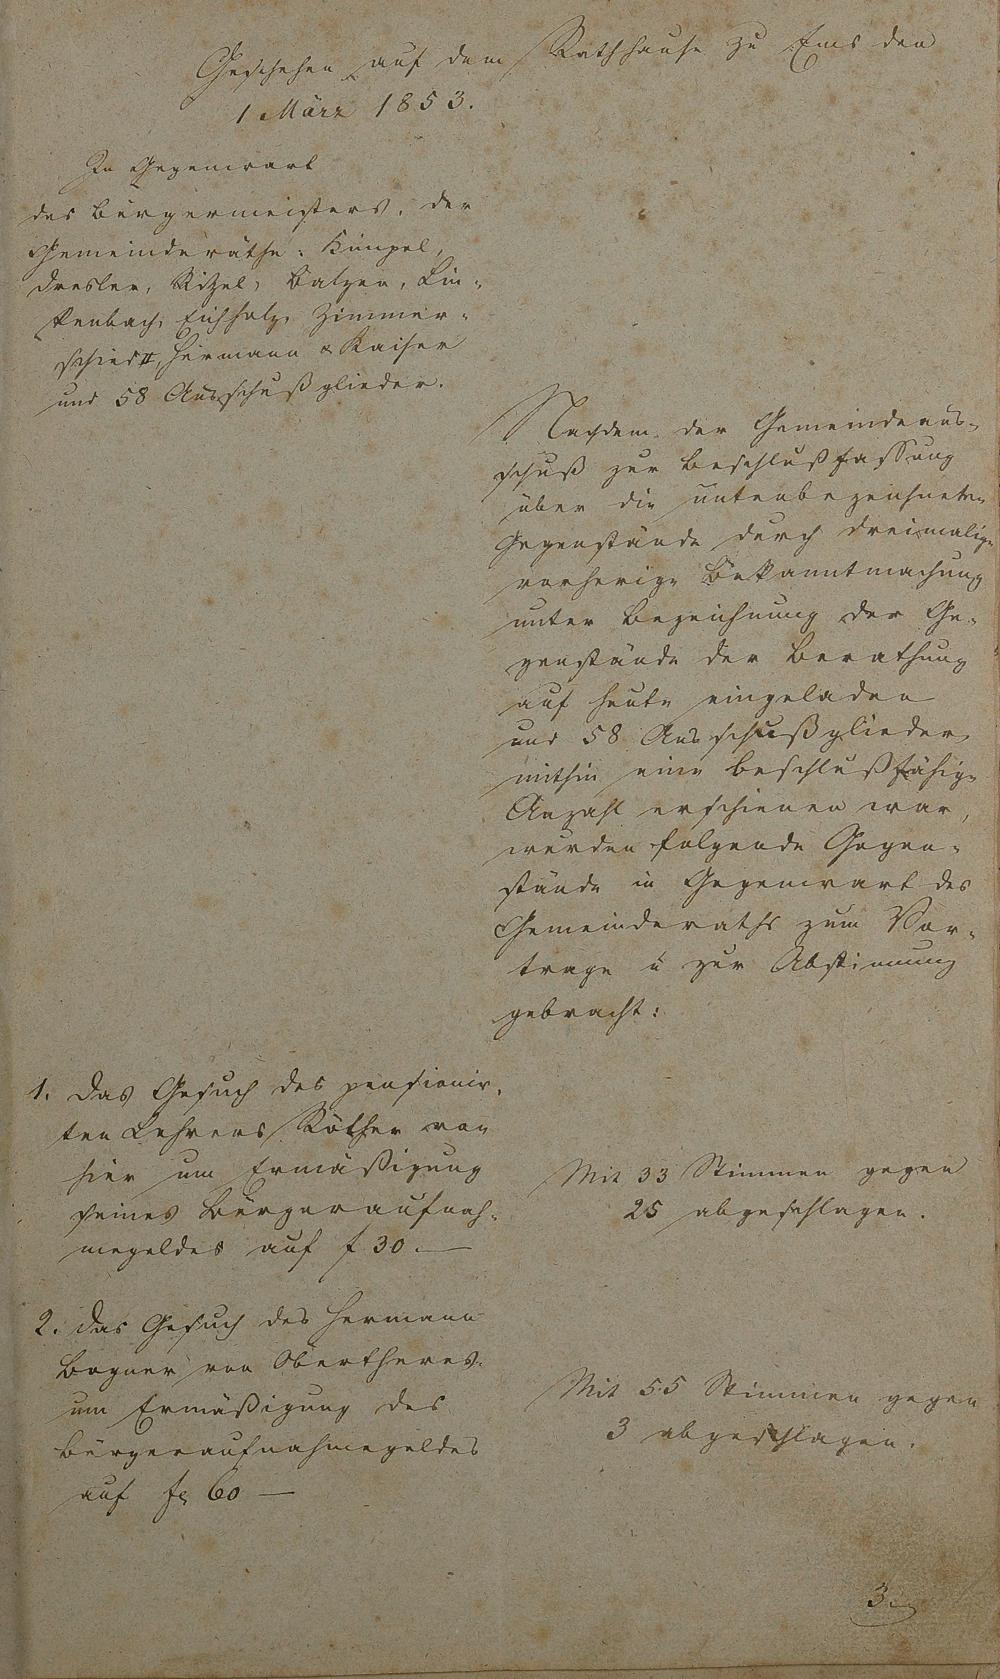 Geschehen auf dem Rathhause zu Ems den
1 März 1853.
In Gegenwart
des Bürgermeisters, der
Gemeinderäthe: Kümpel,
Dresler, Ritzel, Balzer, Lin-
kenbach, Eichholz, Zimmer-
schied II, Hermann & Kaiser
und 58 Ausschußglieder.
Nachdem der Gemeindeaus-
schuß zur Beschlußfassung
über die untenbezeichneten
Gegenstände durch dreimalige
vorherige Bekanntmachung
unter Bezeichnung der Ge-
genstände der Berathung
auf heute eingeladen
und 58 Ausschußglieder,
mithin eine beschlußfähige
Anzahl erschienen war,
wurden folgende Gegen-
stände in Gegenwart des
Gemeinderaths zum Vor-
trage u zur Abstimmung
gebracht:
1. Das Gesuch des pensionir-
ten Lehrers Röther von
hier um Ermäßigung
seines Bürgeraufnah-
megeldes auf f 30.—
Mit 33 Stimmen gegen
25 abgeschlagen.
2. Das Gesuch des Hermann
Bogner von Obertheres
um Ermäßigung des
Bürgeraufnahmegeldes
auf f 60 —
Mit 55 Stimmen gegen
3 abgeschlagen.
3.